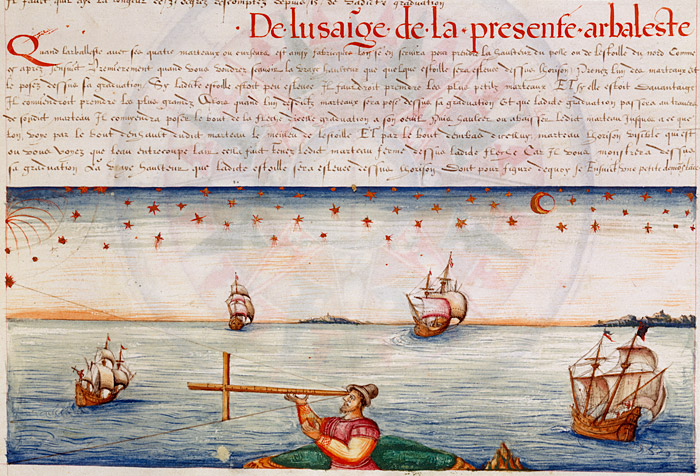 Il fault que aye la longeur de degrez descomptez depuis de ladite graduation
De lusaige de la presente arbaleste
Quand larballeste avec ses quatre marteaux ou curseurs est ainsy fabriquee lon sen servira pour prendre la haulteur du polle ou de lestoille du nord Comme
cy apres sensuit Premierement quand vous vouldrez scavoir la vraye haulteur que quelque estoille sera eslevee dessus lhorison Prenez lun des marteaux et
le posez dessus sa graduation Sy ladite estoille estoit peu eslevee Il fauldroit prendre les plus petitz marteaux Et sy elle estoit davantaige
Il conviendroit prendre les plus grandz Alors quand lun desditz marteaux sera pose dessus sa graduation Et que ladite graduation passera au travers
de sondit marteau Il conviendra poser le bout de la fleche dicelle graduation a son oeil Puis haulser ou abaisser ledit marteau Jusques a ce que
lon voye par le bout denhault dudit marteau le meilleu de lestoille Et par le bout denbas dicelluy marteau lhorison visible qui est
ou vous voyez que leau entrecoupe lair cela faict tenez ledit marteau ferme dessus ladite fleche Car Il vous monstrera dessus
sa graduation La vraye haulteur que ladite estoille sera eslevee dessus lhorison Dont pour figure dequoy sensuit une petite